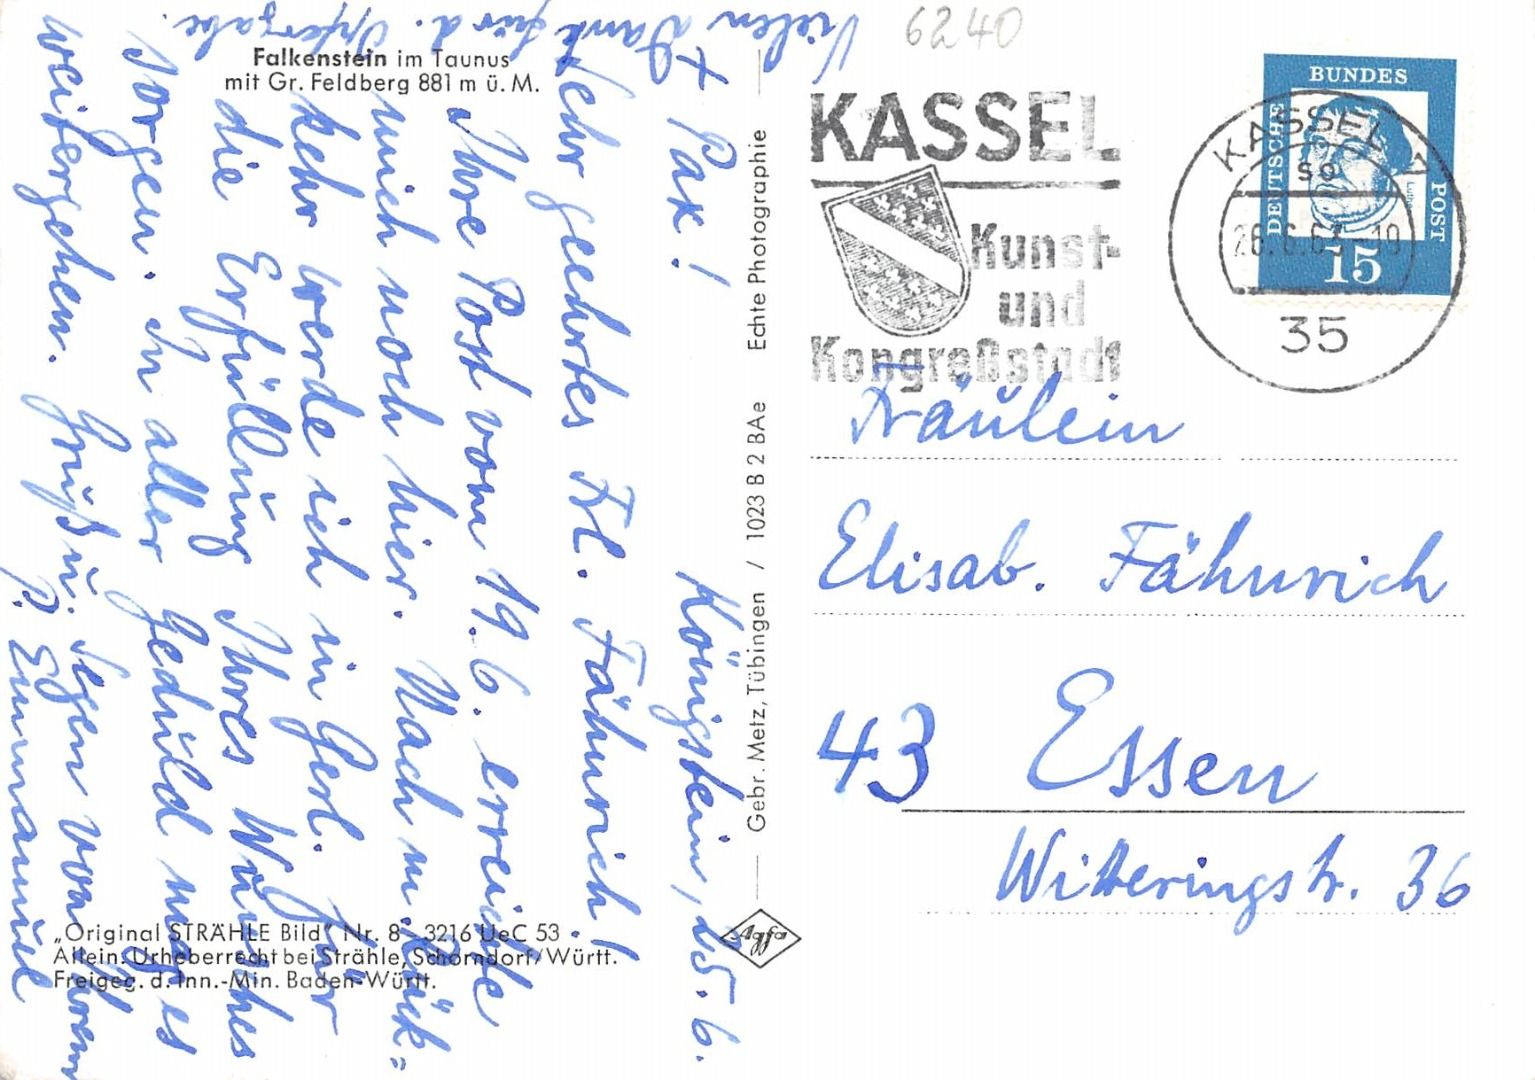 Falkenstein im Taunus
mit Gr. Feldberg 881 m ü. M.
+ Pax! Königstein, 25.6.
Sehr geehrtes Frl. Fähnrich!
Ihre Post vom 19.6. erreichte
mich noch hier. Nach m. Rück=
kehr werde ich in Gerl. für
die Erfüllung Ihres Wunsches
sorgen. In aller Geduld mag es
weitergehen. Gruß u. Segen von Ihrem
P. Emmanuel
Vielen Dank für d. Opfergabe.
„Original STRÄHLE Bild" Nr. 8 - 3216 UeC 53
Allein. Urheberrecht bei Strähle, Schorndorf/Württ.
Freigeg. d. Inn.-Min. Baden-Württ.
Gebr. Metz, Tübingen / 1023 B 2 BAe Echte Photographie
Agfa
6240
KASSEL
Kunst-
und
Kongreßstadt
BUNDES
DEUTSCHE
POST
Luther
15
KASSEL
so
26.6.63-19
35
Fräulein
Elisab. Fähnrich
43 Essen
Witteringstr. 36